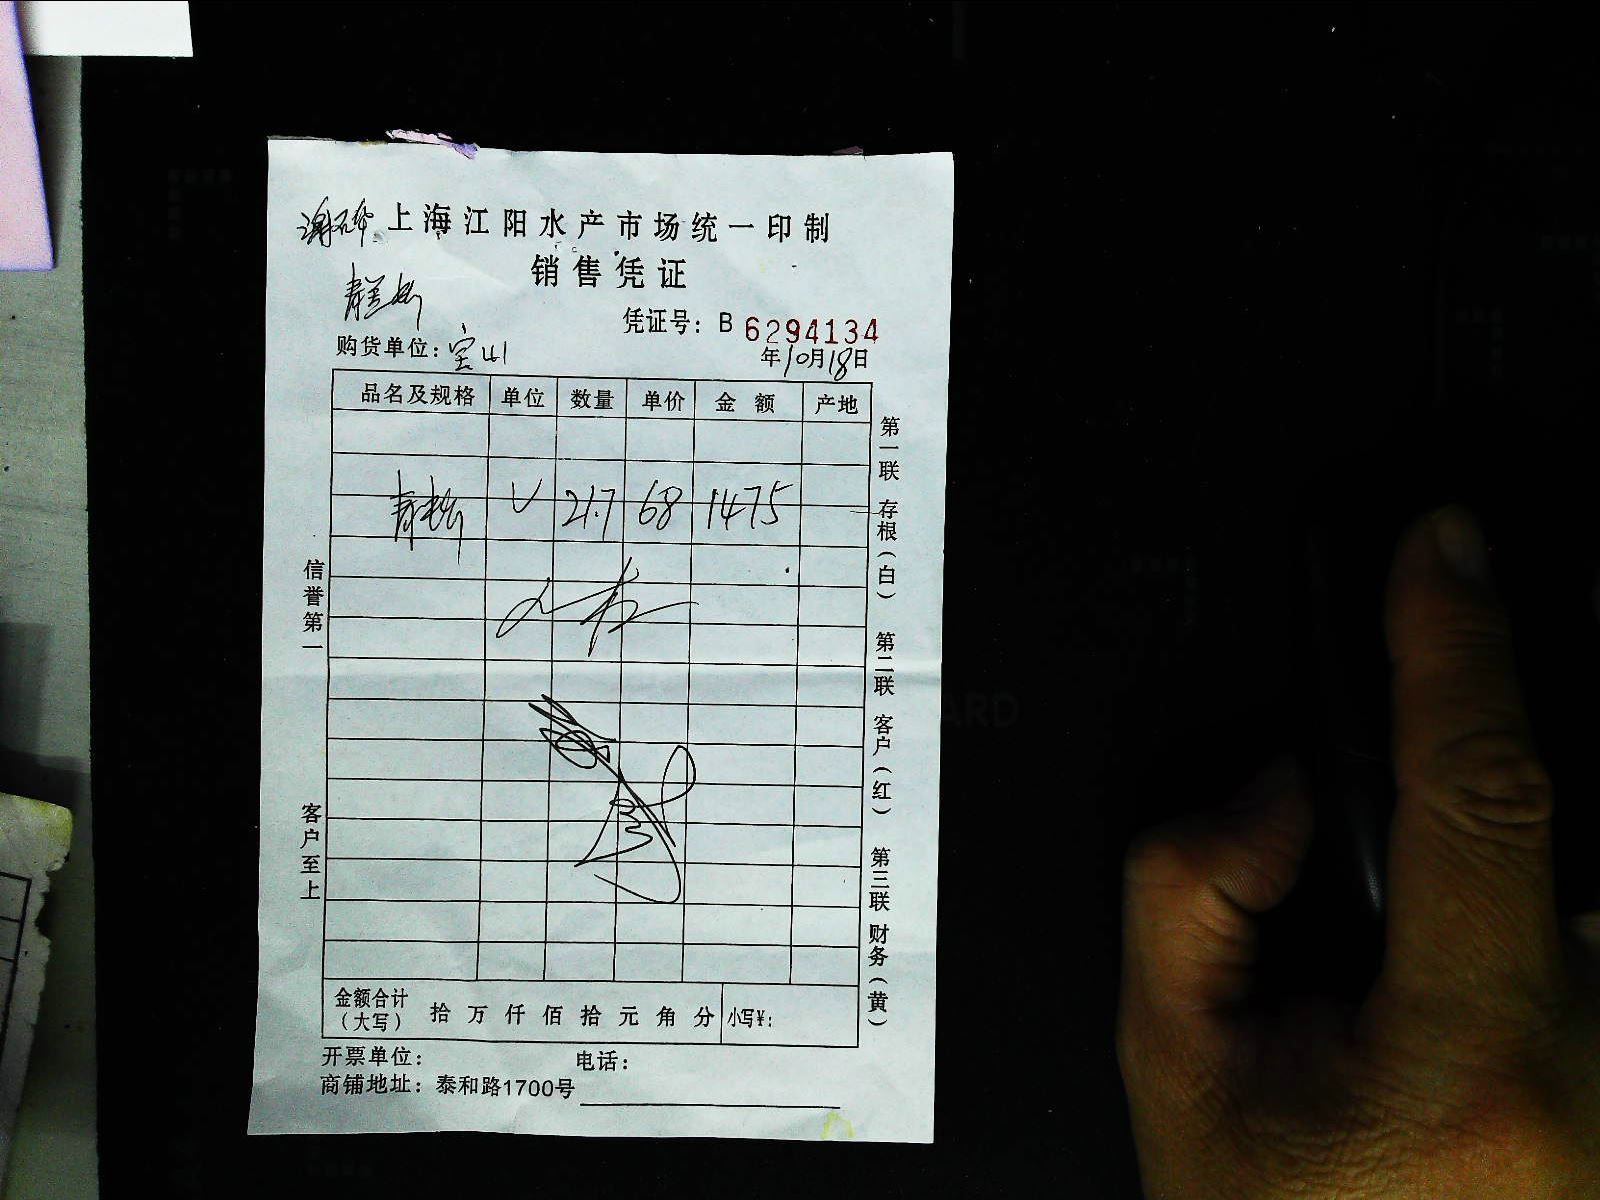 上海江阳水产市场统一印制
销售凭证
凭证号：B 6294134
购货单位：宝山
年10月18日
品名及规格 单位 数量 单价 金额 产地
21.7 68 1475
信誉第一
客户至上
第一联 存根（白） 第二联 客户（红） 第三联 财务（黄）
金额合计（大写） 拾 万 仟 佰 拾 元 角 分 小写¥：
开票单位： 电话：
商铺地址：泰和路1700号